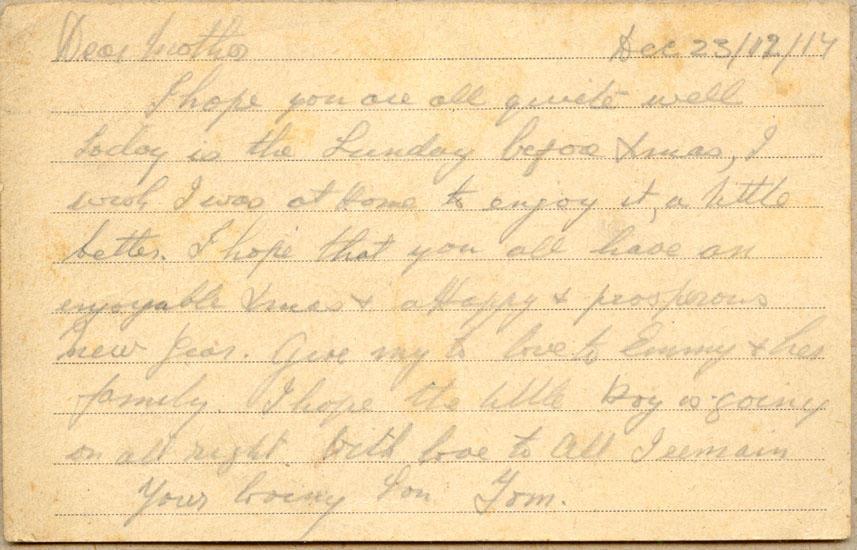 Dear Mother Dec 23/12/17
I hope you are all quite well
today is the Sunday before Xmas, I
wish I was at Home to enjoy it, a little
better. I hope that you all have an
enjoyable Xmas & a Happy & prosperous
New Year. Give my to love to Emmy & her
family. I hope the little Boy is going
on all right. With love to All I remain
Your loving Son Tom.